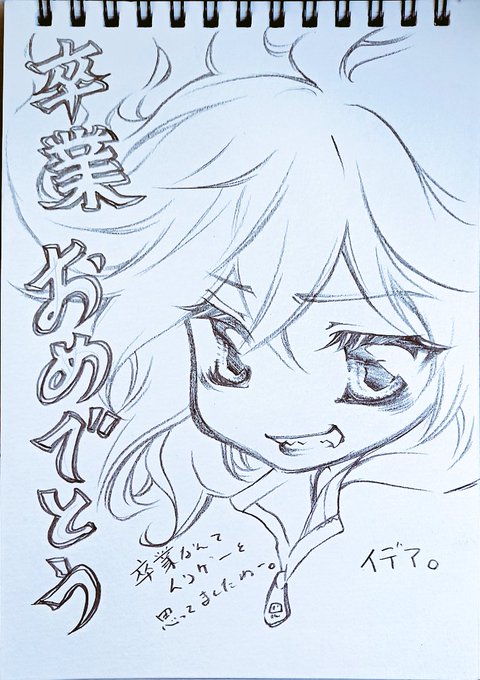 卒業 おめでとう
卒業なんて
ムリゲーと
思ってましたわー。
イデア。